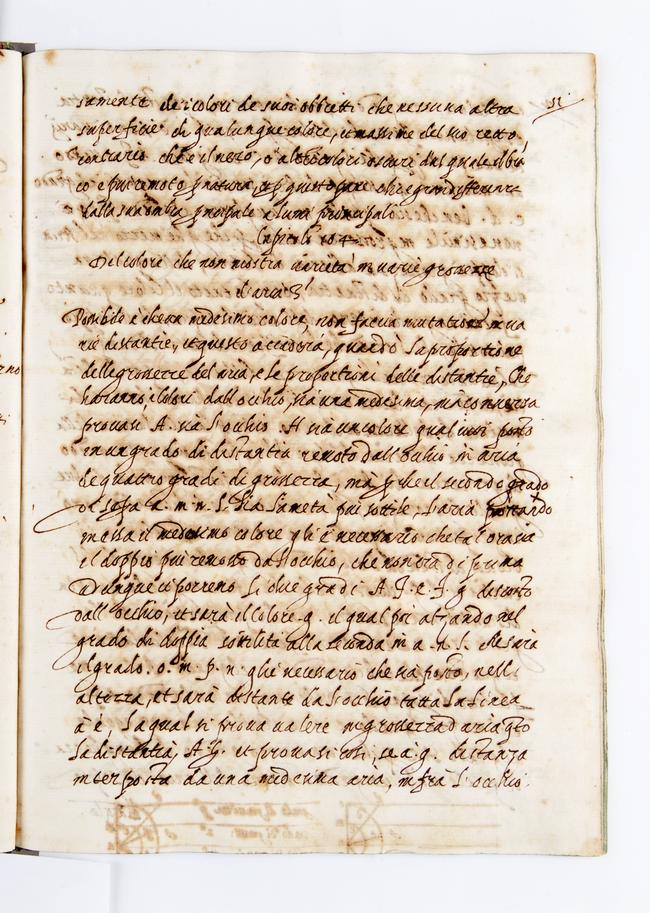 51
samente de i colori de suoi obbietti che nessuna altra
superficie di qualunque colore, et massime del suo retto
contrario che è il nero, o altri colori oscuri dal quale il bian
co è piu remoto p natura, et p questo pare che gran differentie
dalla sua ombra principale a lumi principali
Capitolo 104
Del colore che non mostra varietà in varie grossezze
d'aria
Possibile è che un medesimo colore, non faccia mutatione in va
rie distantie, et questo accaderà, quando la proportione
delle grossezze del aria, e le proportioni delle distantie, che
haranno i colori dall'occhio, sia una medesima, ma conversa
provasi A. sia l'occhio H sia un colore qual tu vuoi posto
in un grado di distantia remoto dall'occhio in aria
de quattro gradi di grossezza, ma p che il secondo grado
di sopra a. m. n. l. ha la metà piu sottile, l'aria portando
in essa il medesimo colore gli è necessario che tal ora sia
il doppio piu remoto da l'occhio, che non era di prima
Adunque vi porremo li due gradi A. f. e. f. g discosto
dall'occhio, et sarà il colore .g. il qual poi alzando nel
grado di doppia sottilità alla seconda in a. n. l. che sarà
il grado. o. m. p. n. gli è necessario che sia posto, nell
altezza, et sarà distante da l'occhio tutta la linea
a è, la qual si prova valere in grossezza d'aria qto
la distantia, A g. et provasi così, se a. g. distanza
interposta da una medesima aria, infra l'occhio